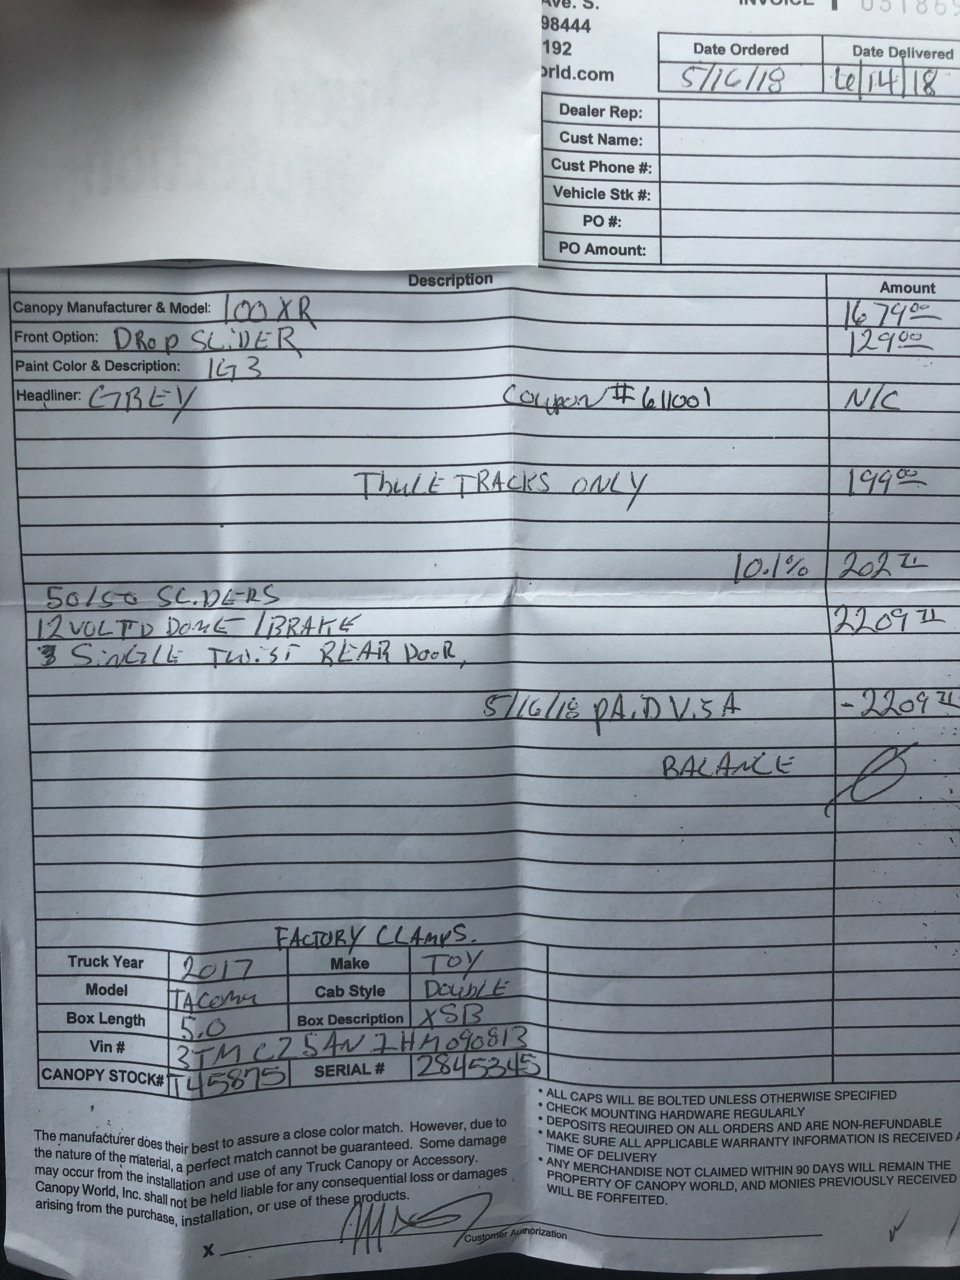 Ave. S.
INVOICE
98444
192
orld.com
Date Ordered Date Delivered
5/16/18 6/14/18
Dealer Rep:
Cust Name:
Cust Phone #:
Vehicle Stk #:
PO #:
PO Amount:
Description Amount
Canopy Manufacturer & Model: 100XR 1679.00
Front Option: DROP SLIDER 129.00
Paint Color & Description: 1G3
Headliner: GREY Coupon # 611001 N/C
ThuLE TRACKS ONLY 199.00
10.1% 202.71
50/50 SLIDERS
12 VOLT D DOME / BRAKE 2209.71
SiNGLE TWiST REAR DOOR,
5/16/18 PAiD ViSA -2209.71
BALANCE
FACTORY CLAMPS.
Truck Year 2017 Make TOY
Model TACOMA Cab Style DOUBLE
Box Length 5.0 Box Description XSB
Vin # 3TMCZ5AN1HM090813
CANOPY STOCK# T45875 SERIAL # 2845345
The manufacturer does their best to assure a close color match. However, due to
the nature of the material, a perfect match cannot be guaranteed. Some damage
may occur from the installation and use of any Truck Canopy or Accessory.
Canopy World, Inc. shall not be held liable for any consequential loss or damages
arising from the purchase, installation, or use of these products.
• ALL CAPS WILL BE BOLTED UNLESS OTHERWISE SPECIFIED
• CHECK MOUNTING HARDWARE REGULARLY
• DEPOSITS REQUIRED ON ALL ORDERS AND ARE NON-REFUNDABLE
• MAKE SURE ALL APPLICABLE WARRANTY INFORMATION IS RECEIVED A
TIME OF DELIVERY
• ANY MERCHANDISE NOT CLAIMED WITHIN 90 DAYS WILL REMAIN THE
PROPERTY OF CANOPY WORLD, AND MONIES PREVIOUSLY RECEIVED
WILL BE FORFEITED.
X
Customer Authorization